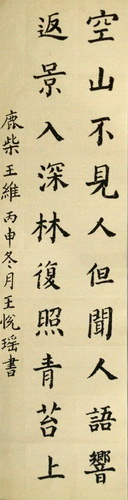 空山不見人但聞人語響
返景入深林復照青苔上
鹿柴王維丙申冬月王悅瑶書